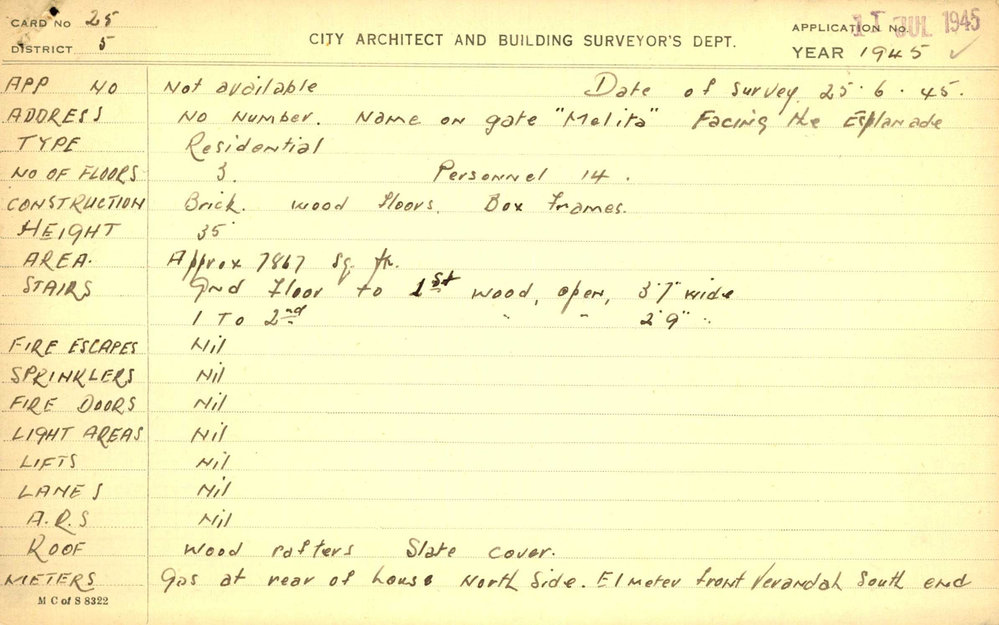 CARD NO 25
DISTRICT 5
CITY ARCHITECT AND BUILDING SURVEYOR'S DEPT.
APPLICATION NO.
JUL 1945
YEAR 1945 ✓
APP NO Not available Date of survey 25.6.45.
ADDRESS No Number. Name on gate "Melita" Facing the Esplanade
TYPE Residential
NO OF FLOORS 3. Personnel 14.
CONSTRUCTION Brick. Wood floors. Box frames.
HEIGHT 35'
AREA. Approx 7867 sq. ft.
STAIRS Gnd Floor to 1st wood, open, 3'7" wide
1 To 2nd " " 2'9" "
FIRE ESCAPES Nil
SPRINKLERS Nil
FIRE DOORS Nil
LIGHT AREAS Nil
LIFTS Nil
LANES Nil
A.R.S Nil
ROOF Wood rafters Slate cover.
METERS Gas at rear of house North Side. El meter front Verandah South end
M C of S 8322